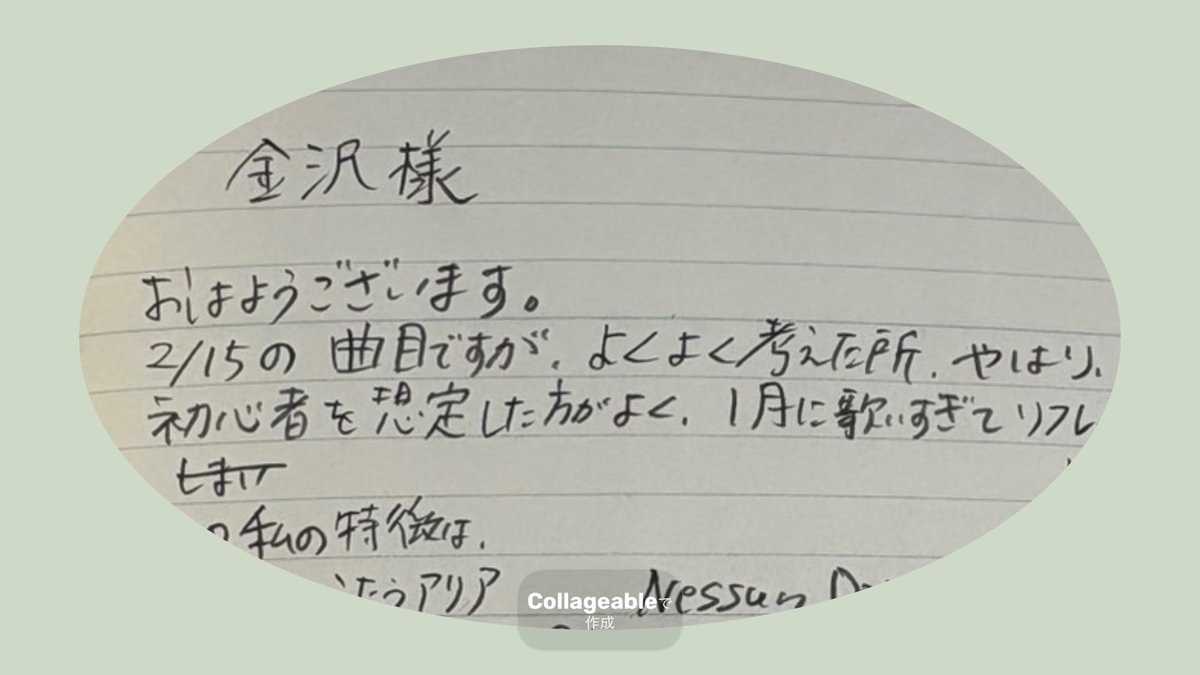 金沢様
おはようございます。
2/15の 曲目ですが、よくよく考えた所、やはり、
初心者を想定した方がよく、1月に歌いすぎてリフレ
しまい
の私の特徴は、
うたうアリア Nessun
Collageableで
作成